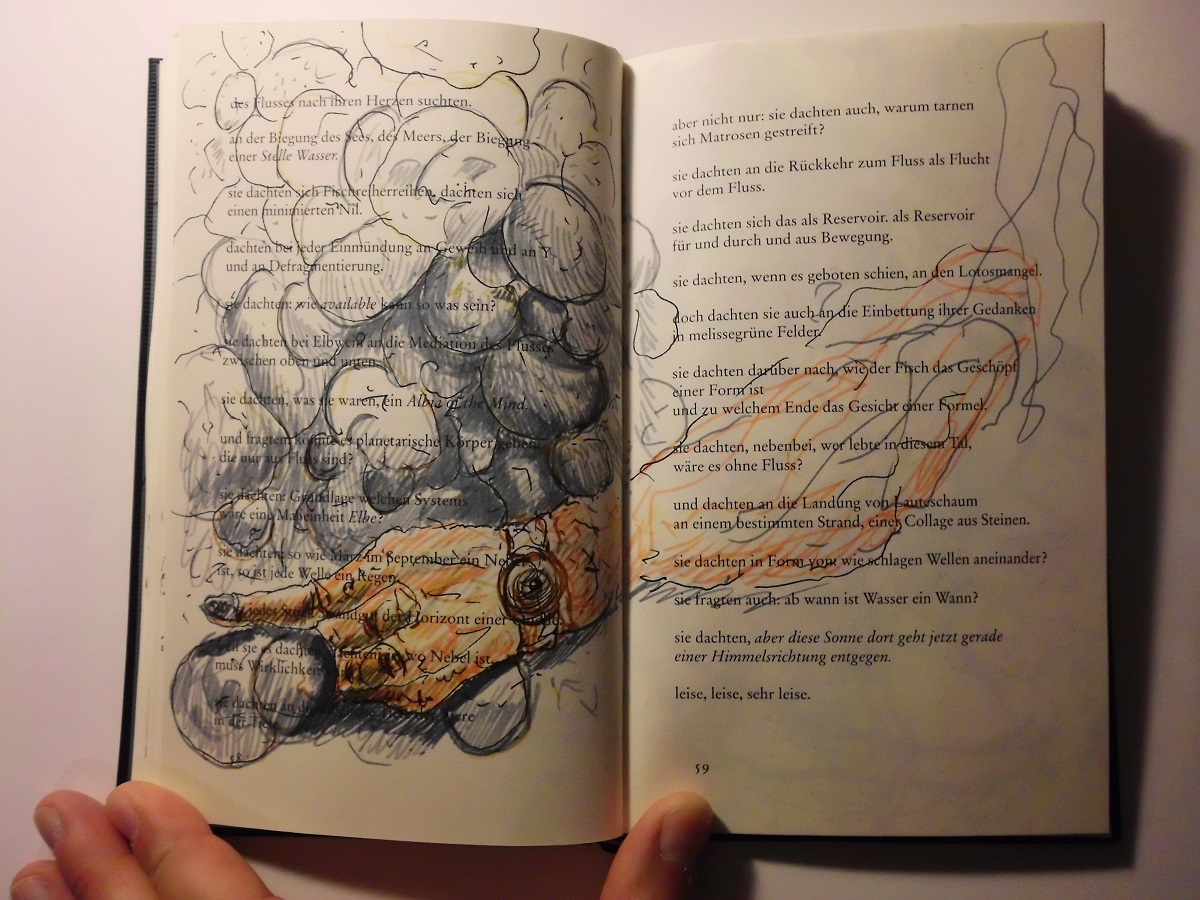 des Flusses nach ihren Herzen suchten.
an der Biegung des Sees, des Meers, der Biegung
einer Stelle Wasser.
sie dachten sich Fischreiherreihen, dachten sich
einen minimierten Nil.
dachten bei jeder Einmündung an Geweih und an Y
und an Defragmentierung.
sie dachten: wie available kann so was sein?
sie dachten bei Elbwein an die Mediation des Flusses
zwischen oben und unten.
sie dachten, was sie waren, ein Albia of the Mind.
und fragten: könnte es planetarische Körper geben,
die nur aus Fluss sind?
sie dachten: Grundlage welchen Systems
wäre eine Maßeinheit Elbe?
sie dachten: so wie März im September ein Nebel
ist, so ist jede Welle ein Regen.
jedes Stück Strandgut der Horizont einer
sie es dachten, wo Nebel ist,
muss Wirklichkeit
sie dachten an die
in der Tiefe
58
aber nicht nur: sie dachten auch, warum tarnen
sich Matrosen gestreift?
sie dachten an die Rückkehr zum Fluss als Flucht
vor dem Fluss.
sie dachten sich das als Reservoir. als Reservoir
für und durch und aus Bewegung.
sie dachten, wenn es geboten schien, an den Lotosmangel.
doch dachten sie auch an die Einbettung ihrer Gedanken
in melissegrüne Felder.
sie dachten darüber nach, wie der Fisch das Geschöpf
einer Form ist
und zu welchem Ende das Gesicht einer Formel.
sie dachten, nebenbei, wer lebte in diesem Tal,
wäre es ohne Fluss?
und dachten an die Landung von Lauteschaum
an einem bestimmten Strand, einer Collage aus Steinen.
sie dachten in Form von: wie schlagen Wellen aneinander?
sie fragten auch: ab wann ist Wasser ein Wann?
sie dachten, aber diese Sonne dort geht jetzt gerade
einer Himmelsrichtung entgegen.
leise, leise, sehr leise.
59